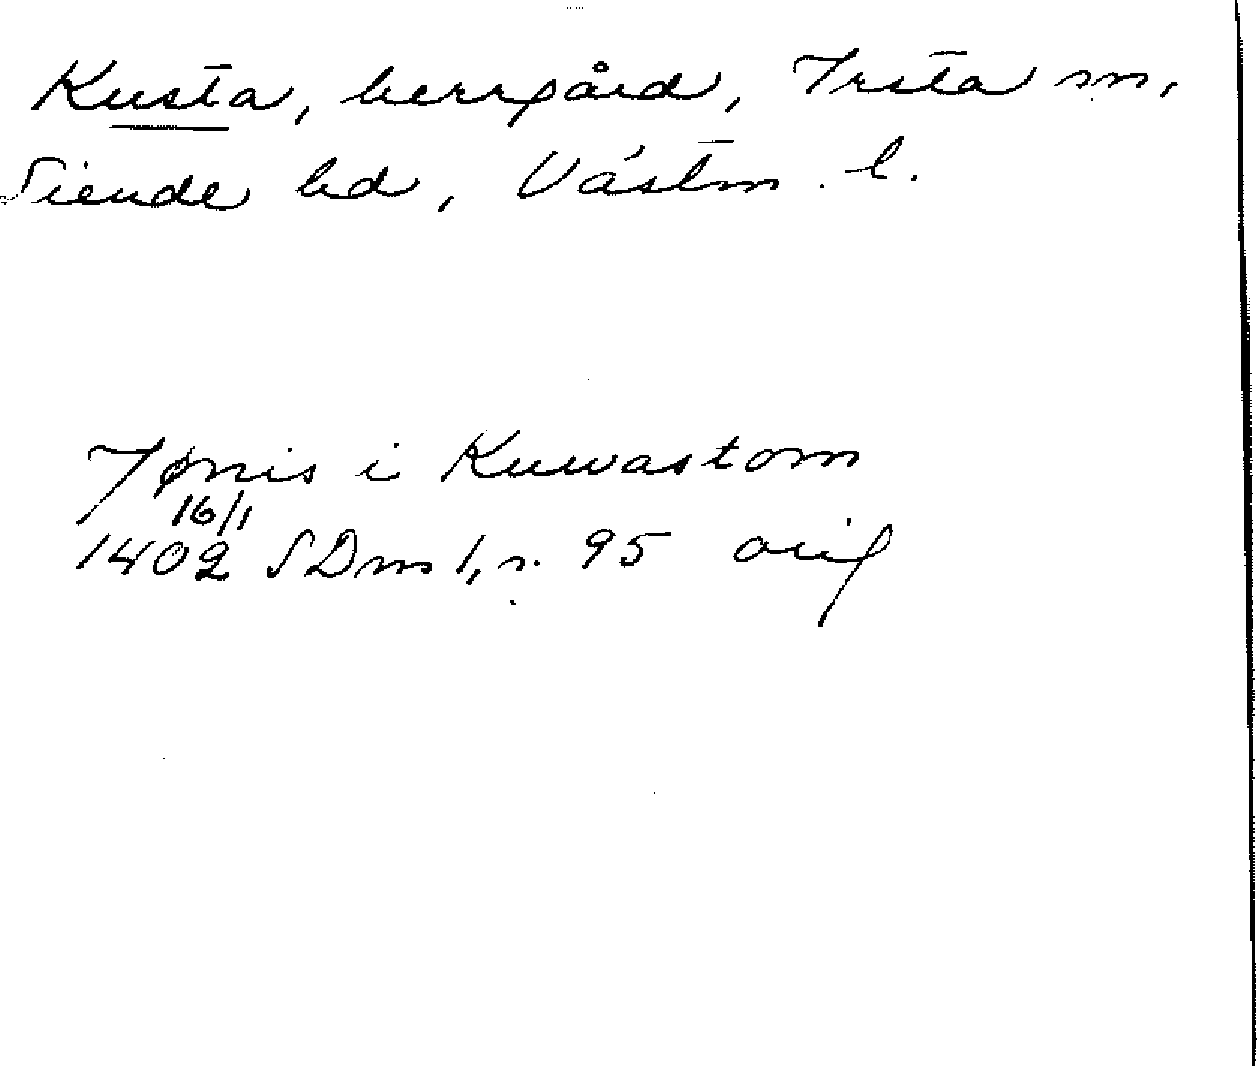 Kusta, herrgård, Irsta sn,
Siende hd, Västm. l.
Jønis i Kuwastom
16/1
1402 SDns 1, s. 95 orig